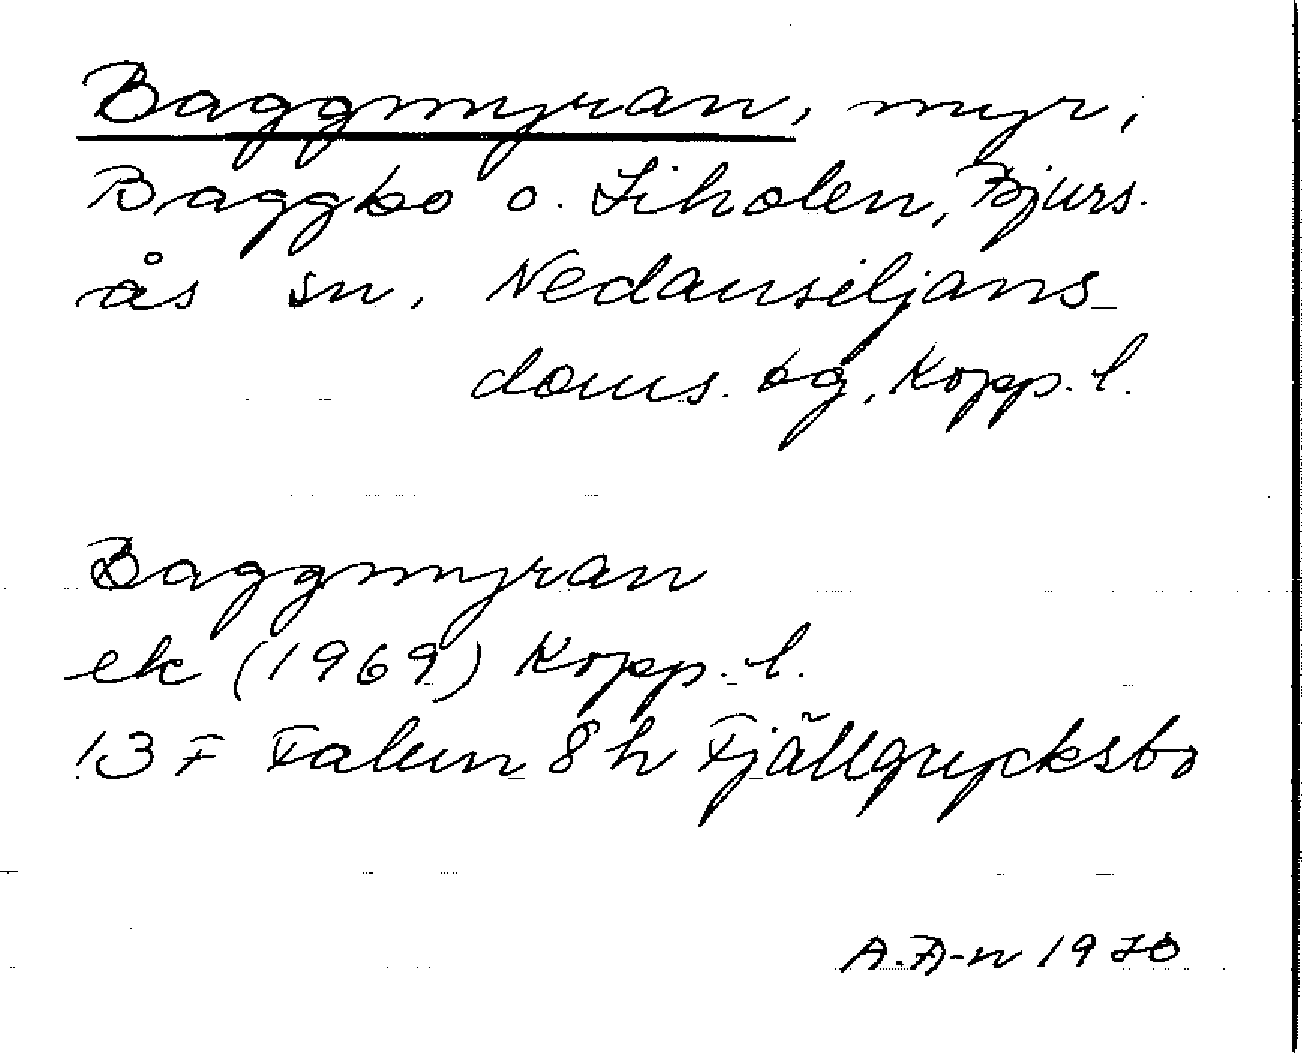 Baggmyran, myr,
Baggbo o. Liholen, Bjurs-
ås sn, Nedansiljans-
doms. bg, Kopp. l.
Baggmyran
ek (1969) Kopp. l.
13 F Falun 8 h Fjällgrycksbo
1970